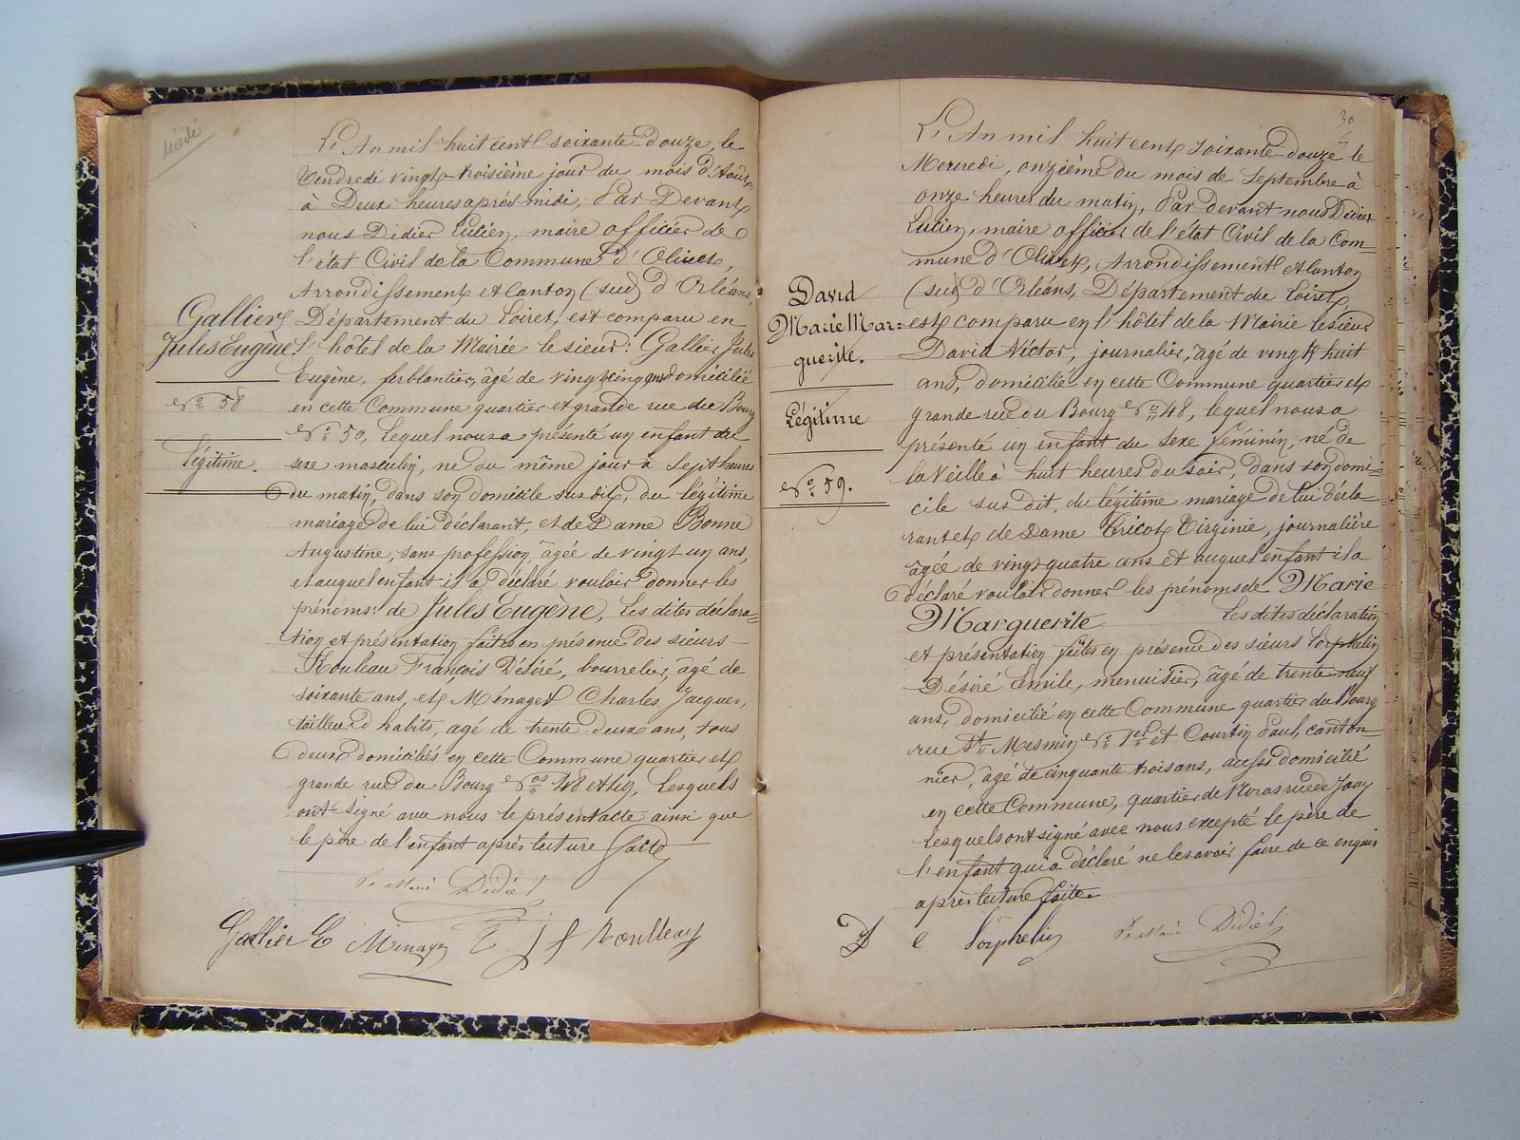 L'An mil huit cent soixante douze, le
Vendredi vingt troisième jour du mois d'Août
à Deux heures après midi, Par Devant
nous Didier Lucien, maire officier de
l'état Civil de la Commune d'Olivet,
Arrondissement et Canton (sud) d'Orléans,
Département du Loiret, est comparu en
l'hôtel de la Mairie le sieur: Gallier Jules
Eugène, ferblantier, âgé de vingt cinq ans domicilié
en cette Commune quartier et grande rue du Bourg
N° 50, Lequel nous a présenté un enfant du
sexe masculin, né du même jour à Sept heures
du matin, dans son domicile sus dit, du légitime
mariage de lui déclarant, et de Dame Bonne
Augustine, sans profession, âgée de vingt un ans,
et auquel enfant il a déclaré vouloir donner les
prénoms: de Jules Eugène, Les dites déclara=
tion et présentation faites en présence des sieurs
Rouleau François Désiré, bourrelier, âgé de
soixante ans, et Ménager Charles Jacques,
tailleur d'habits, agé de trente deux ans, tous
deux domiciliés en cette Commune quartier et
grande rue du Bourg Nos 48 et 49, Lesquels
ont signé avec nous le présent acte ainsi que
le père de l'enfant après lecture faite
Gallier
Jules Eugène
N° 58
Légitime.
Le Maire Didier
Gallier E Menager J f Roulleau
30
L'An mil huit cent soixante douze le
Mercredi, onzième du mois de Septembre à
onze heures du matin, Par devant nous Didier
Lucien, maire officier de l'état Civil de la Com=
mune d'Olivet, Arrondissement et Canton
(sud) d'Orléans, Département du Loiret,
est comparu en l'hôtel de la Mairie le sieur
David Victor, journalier, âgé de vingt huit
ans, domicilié en cette Commune quartier et
grande rue du Bourg N° 48, lequel nous a
présenté un enfant du sexe féminin, né de
la Veille à huit heures du soir, dans son domi=
cile sus dit, du légitime mariage de lui décla=
rant et de Dame Tricot Virginie, journalière
âgée de vingt quatre ans et auquel enfant il a
déclaré vouloir donner les prénoms de Marie
Marguerite Les dites déclaration
et présentation faites en présence des sieurs Lorphelin
Désiré Emile, menuisier, âgé de trente neuf
ans, domicilié en cette Commune quartier du Bourg
rue St Mesmin N° 1er et Courtin Paul, canton=
nier, âgé de cinquante trois ans, aussi domicilié
en cette Commune, quartier de
Lesquels ont signé avec nous excepté le père de
l'enfant qui a déclaré ne le savoir faire de ce enquis
après lecture faite.
David
Marie Mar=
guerite.
Légitime
N° 59.
D e Lorphelin Le Maire Didier